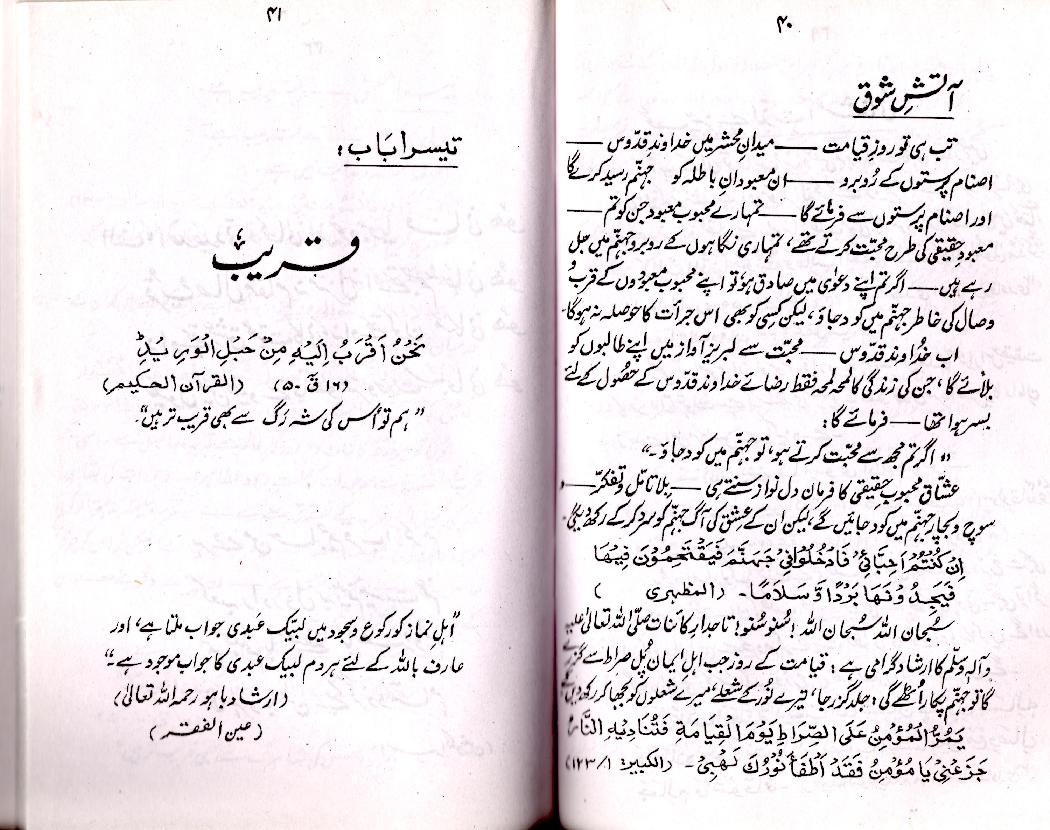 ۴۰
آتشِ شوق
تب ہی تو روزِ قیامت —— میدانِ محشر میں خداوندِ قدّوس ——
اصنام پرستوں کے رُوبرو —— ان معبودانِ باطلہ کو جہنّم رسید کرے گا
اور اصنام پرستوں سے فرمائے گا —— تمہارے محبوب معبود جن کو تم ——
معبودِ حقیقی کی طرح محبّت کرتے تھے، تمہاری نگاہوں کے روبرو جہنّم میں جل
رہے ہیں —— اگر تم اپنے دعوٰی میں صادق ہو تو اپنے محبوب معبودوں کے قرب
وصال کی خاطر جہنّم میں کود جاؤ، لیکن کسی کو بھی اس جرأت کا حوصلہ نہ ہوگا۔
اب خداوند قدّوس —— محبّت سے لبریز آواز میں اپنے طالبوں کو
بلائے گا، جن کی زندگی کا لمحہ لمحہ فقط رضائے خداوند قدّوس کے حصُول کے لئے
بسر ہوا تھا —— فرمائے گا:
"اگر تم مجھ سے محبّت کرتے ہو، تو جہنّم میں کود جاؤ۔"
عشاق محبوبِ حقیقی کا فرمان دل نواز سنتے ہی —— بلا تامّل و تفکّر ——
سوچ و بچار جہنّم میں کود جائیں گے، لیکن ان کے عشق کی آگ جہنّم کو سرد کر کے رکھ دیگی۔
اِنْ كُنْتُمْ اَحِبَّائِيْ فَادْخُلُوْا فِيْ جَهَنَّمَ فَيَقْتَحِمُوْنَ فِيْهَا
فَيَجِدُوْنَهَا بَرْدًا وَّ سَلَامًا۔ (المظہری )
سُبحان اللہ سُبحان اللہ! سُنو سُنو! تاجدارِ کائنات صلّی اللہ تعالٰی علیہ
وآلہ وسلّم کا ارشاد گرامی ہے: قیامت کے روز جب اہلِ ایمان پُل صراط سے گزرے
گا تو جہنّم پکار اُٹھے گی: جلد گزر جا، تیرے نُور کے شعلے، میرے شعلوں کو بجھا کر رکھ دیں گے
يَمُرُّ الْمُؤْمِنُ عَلَى الصِّرَاطِ يَوْمَ الْقِيَامَةِ فَتُنَادِيْهِ النَّارُ
جَزْعَنِّيْ يَا مُؤْمِنُ فَقَدْ اَطْفَأَ نُوْرُكَ لَهْبِيْ۔ (الکبیر: ۱/۱۲۳)
۴۱
تیسرا باب:
قریب
نَحْنُ اَقْرَبُ اِلَيْهِ مِنْ حَبْلِ الْوَرِيْدِ
(۱۶ ق ۵۰) (القرآن الحکیم)
"ہم تو اُس کی شہ رگ سے بھی قریب تر ہیں"۔
"اہلِ نماز کو رکوع و سجود میں لبیک عبدی جواب ملتا ہے، اور
عارف باللہ کے لئے ہر دم لبیک عبدی کا جواب موجود ہے۔"
(ارشاد باہو رحمہ اللہ تعالٰی)
(عین الفقر)